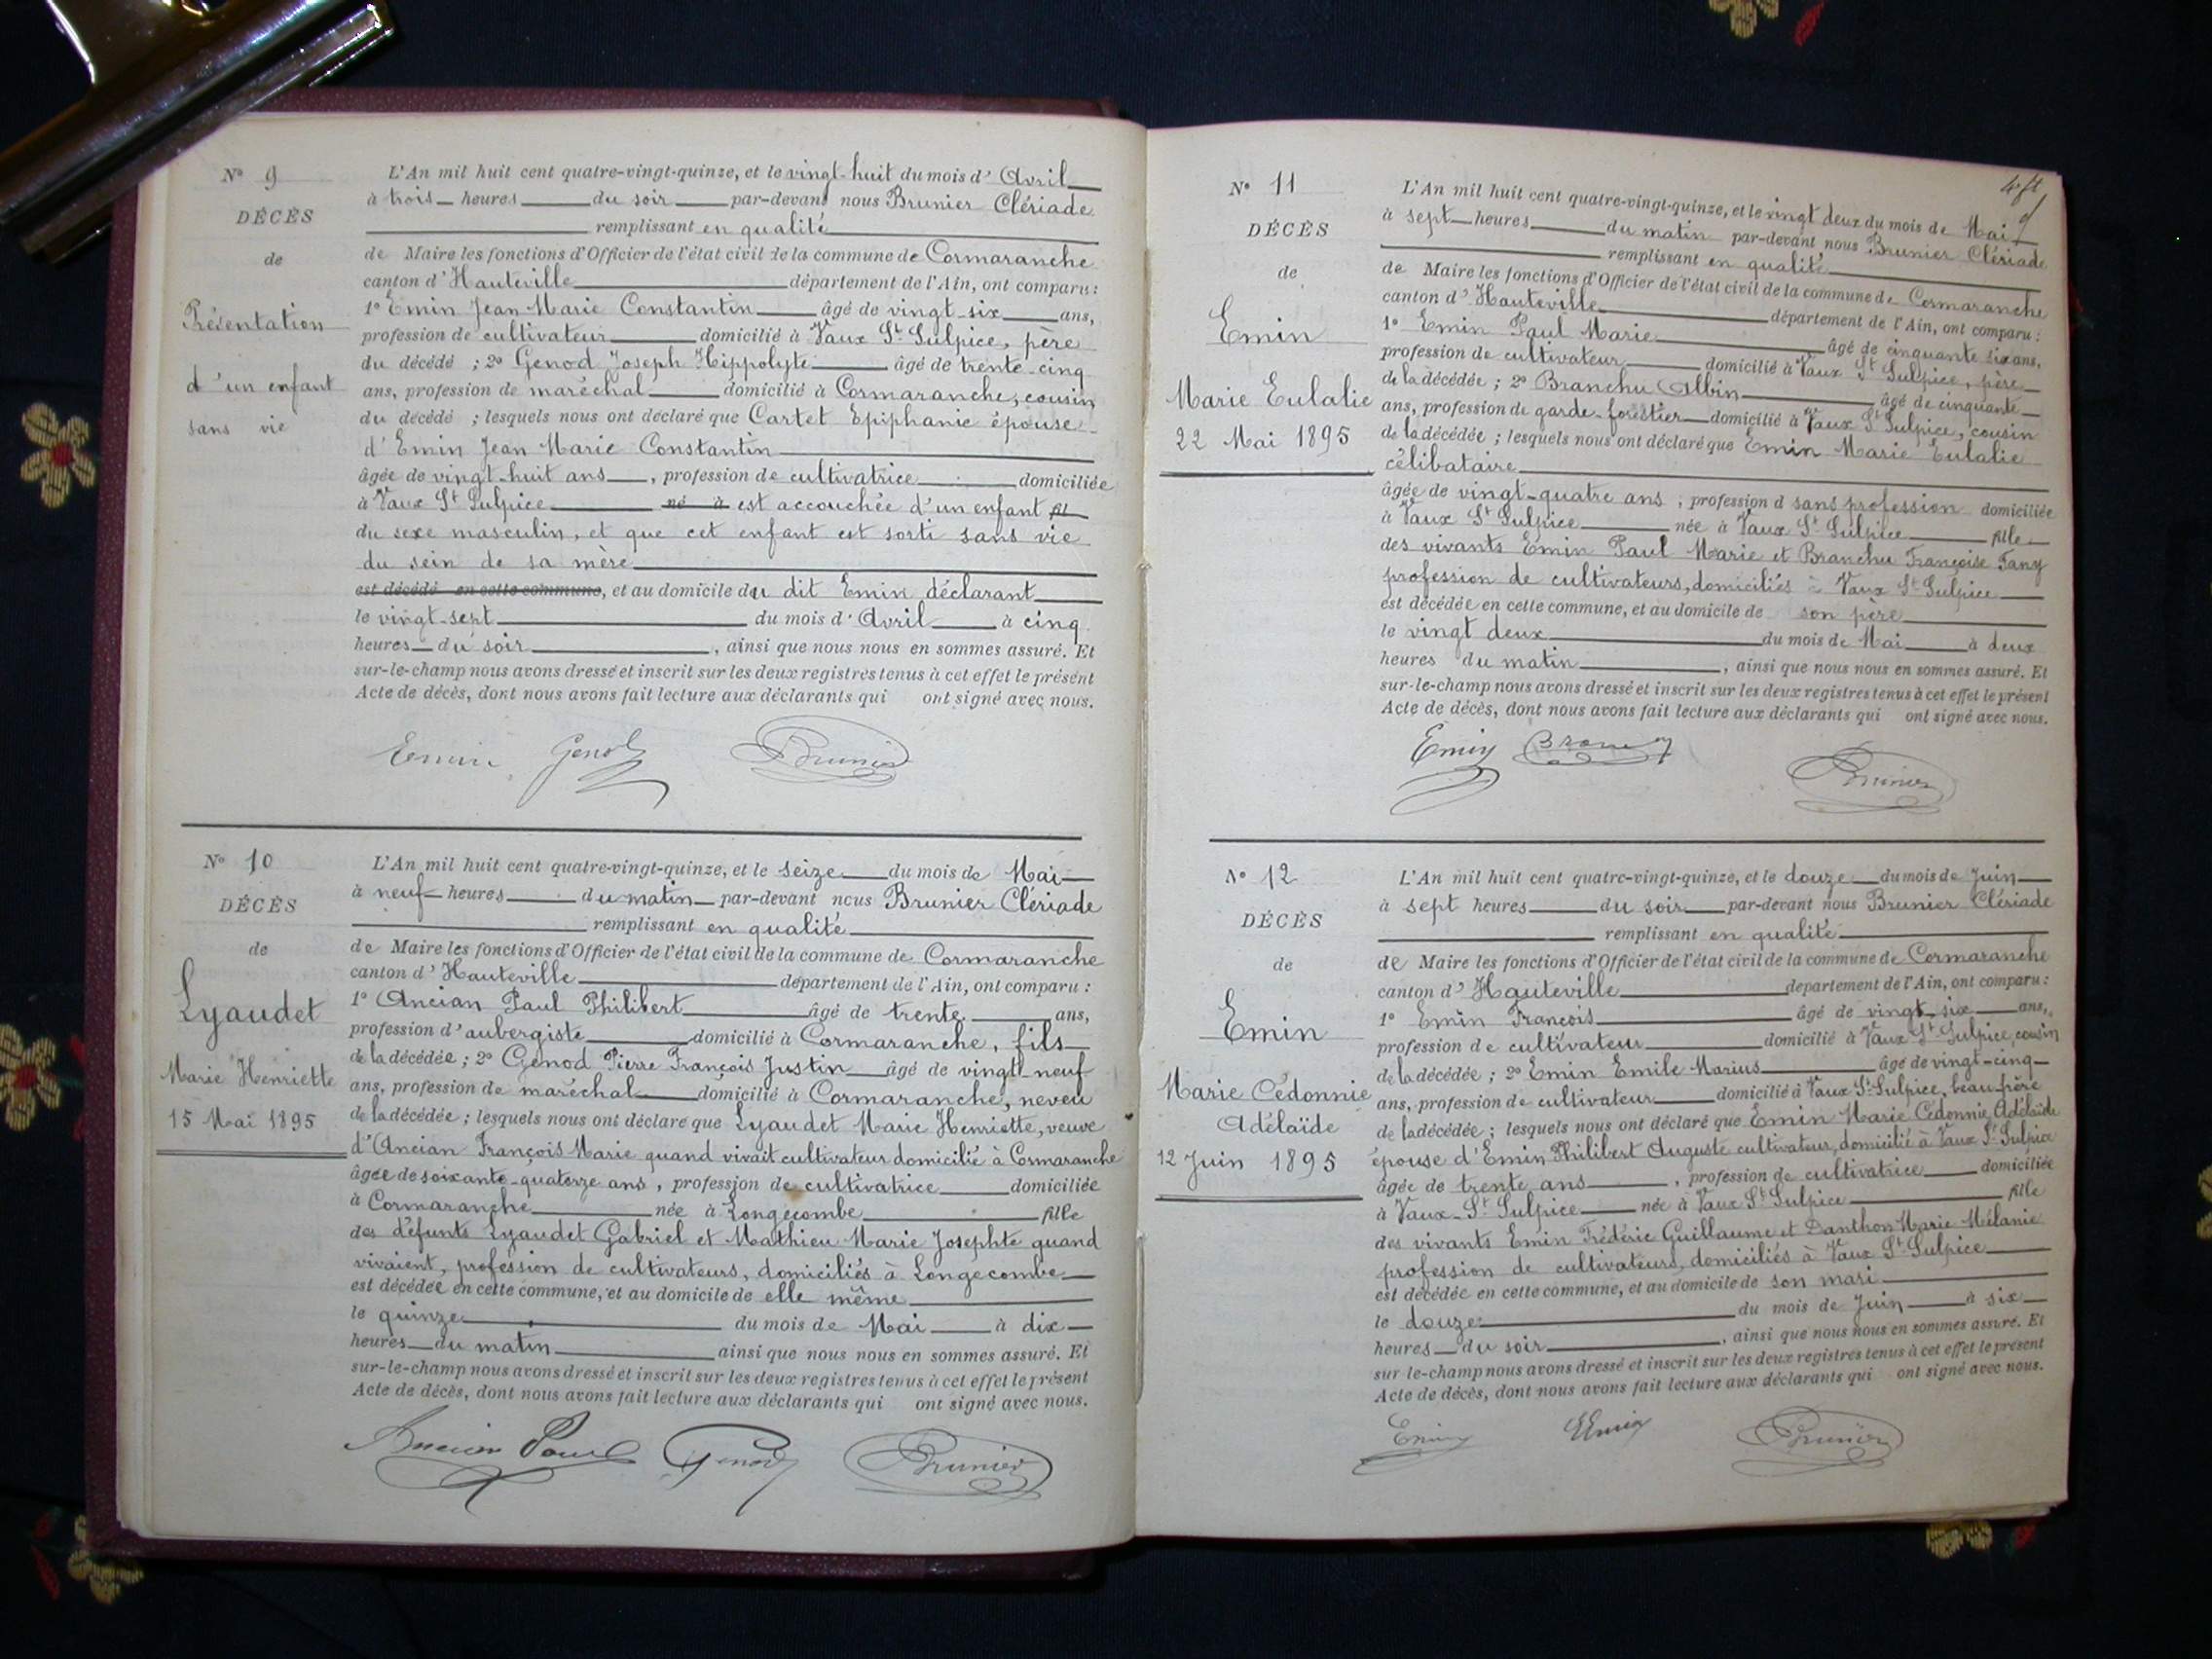 N° 9
DÉCÈS
de
Présentation
d'un enfant
sans vie
L'An mil huit cent quatre-vingt-quinze, et le vingt-huit du mois d'Avril
à trois heures du soir par-devant nous Brunier Clériade
remplissant en qualité
de Maire les fonctions d'Officier de l'état civil de la commune de Cormaranche
canton d'Hauteville département de l'Ain, ont comparu :
1° Emin Jean Marie Constantin âgé de vingt-six ans,
profession de cultivateur domicilié à Vaux St Sulpice, père
du décédé ; 2° Genod Joseph Hippolyte âgé de trente-cinq
ans, profession de maréchal domicilié à Cormaranche, cousin
du décédé ; lesquels nous ont déclaré que Cartet Epiphanie épouse
d'Emin Jean Marie Constantin
âgée de vingt-huit ans, profession de cultivatrice domiciliée
à Vaux St Sulpice né à est accouchée d'un enfant fil
du sexe masculin, et que cet enfant est sorti sans vie
du sein de sa mère
est décédé en cette commune, et au domicile du dit Emin déclarant
le vingt-sept du mois d'Avril à cinq
heures du soir, ainsi que nous nous en sommes assuré. Et
sur-le-champ nous avons dressé et inscrit sur les deux registres tenus à cet effet le présent
Acte de décès, dont nous avons fait lecture aux déclarants qui ont signé avec nous.
Emin Genod Brunier
N° 10
DÉCÈS
de
Lyaudet
Marie Henriette
15 Mai 1895
L'An mil huit cent quatre-vingt-quinze, et le seize du mois de Mai
à neuf heures du matin par-devant nous Brunier Clériade
remplissant en qualité
de Maire les fonctions d'Officier de l'état civil de la commune de Cormaranche
canton d'Hauteville département de l'Ain, ont comparu :
1° Ancian Paul Philibert âgé de trente ans,
profession d'aubergiste domicilié à Cormaranche, fils
de la décédée ; 2° Genod Pierre François Justin âgé de vingt-neuf
ans, profession de maréchal domicilié à Cormaranche, neveu
de la décédée ; lesquels nous ont déclaré que Lyaudet Marie Henriette, veuve
d'Ancian François Marie quand vivait cultivateur domicilié à Cormaranche
âgée de soixante-quatorze ans, profession de cultivatrice domiciliée
à Cormaranche née à Longecombe fille
des défunts Lyaudet Gabriel et Mathieu Marie Josephte quand
vivaient, profession de cultivateurs, domiciliés à Longecombe
est décédée en cette commune, et au domicile de elle même
le quinze du mois de Mai à dix
heures du matin ainsi que nous nous en sommes assuré. Et
sur-le-champ nous avons dressé et inscrit sur les deux registres tenus à cet effet le présent
Acte de décès, dont nous avons fait lecture aux déclarants qui ont signé avec nous.
Ancian Paul Genod Brunier
N° 11
DÉCÈS
de
Emin
Marie Eulalie
22 Mai 1895
L'An mil huit cent quatre-vingt-quinze, et le vingt deux du mois de Mai
à sept heures du matin par-devant nous Brunier Clériade
remplissant en qualité
de Maire les fonctions d'Officier de l'état civil de la commune de Cormaranche
canton d'Hauteville département de l'Ain, ont comparu :
1° Emin Paul Marie âgé de cinquante six ans,
profession de cultivateur domicilié à Vaux St Sulpice, père
de la décédée ; 2° Branchu Albin âgé de cinquante
ans, profession de garde-forestier domicilié à Vaux St Sulpice, cousin
de la décédée ; lesquels nous ont déclaré que Emin Marie Eulalie
célibataire
âgée de vingt-quatre ans, profession d sans profession domiciliée
à Vaux St Sulpice née à Vaux St Sulpice fille
des vivants Emin Paul Marie et Branchu Françoise Fany
profession de cultivateurs, domiciliés à Vaux St Sulpice
est décédée en cette commune, et au domicile de son père
le vingt deux du mois de Mai à deux
heures du matin, ainsi que nous nous en sommes assuré. Et
sur-le-champ nous avons dressé et inscrit sur les deux registres tenus à cet effet le présent
Acte de décès, dont nous avons fait lecture aux déclarants qui ont signé avec nous.
Emin Brunier
N° 12
DÉCÈS
de
Emin
Marie Cédonnie
Adélaïde
12 Juin 1895
L'An mil huit cent quatre-vingt-quinze, et le douze du mois de Juin
à sept heures du soir par-devant nous Brunier Clériade
remplissant en qualité
de Maire les fonctions d'Officier de l'état civil de la commune de Cormaranche
canton d'Hauteville département de l'Ain, ont comparu :
1° Emin François âgé de vingt-six ans,
profession de cultivateur domicilié à Vaux St Sulpice, cousin
de la décédée ; 2° Emin Emile Marius âgé de vingt-cinq
ans, profession de cultivateur domicilié à Vaux St Sulpice, beau frère
de la décédée ; lesquels nous ont déclaré que Emin Marie Cédonnie Adélaïde
épouse d'Emin Philibert Auguste cultivateur, domicilié à Vaux St Sulpice
âgée de trente ans, profession de cultivatrice domiciliée
à Vaux-St Sulpice née à Vaux St Sulpice fille
des vivants Emin Frédéric Guillaume et Danthon Marie Mélanie
profession de cultivateurs, domiciliés à Vaux St Sulpice
est décédée en cette commune, et au domicile de son mari
le douze du mois de Juin à six
heures du soir, ainsi que nous nous en sommes assuré. Et
sur-le-champ nous avons dressé et inscrit sur les deux registres tenus à cet effet le présent
Acte de décès, dont nous avons fait lecture aux déclarants qui ont signé avec nous.
Emin EEmin Brunier